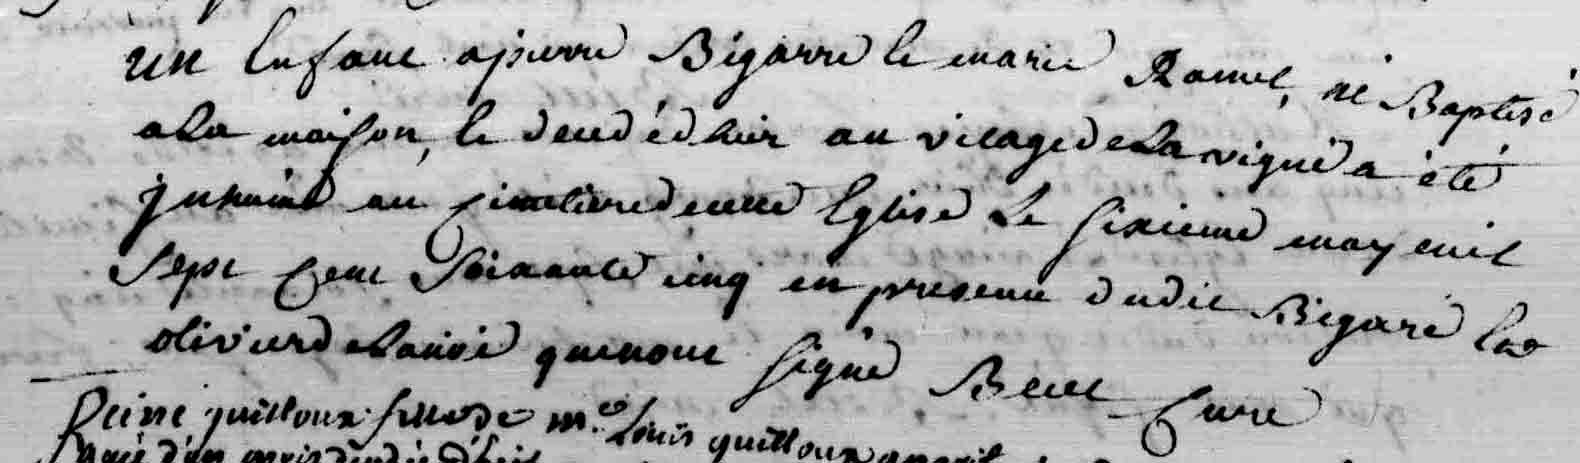 un Enfant a pierre Bigarré Et marie Ramel, né Baptisé
a La maison, Et decedé d'hier au vilage de La vigne a été
inhumé au Cimetiere de cette Eglise Le sixieme may mil
sept Cent soixante cinq en presence dudit Bigaré Et
olivier qui n'ont signé Curé
Reine guilloux fille de m.e Louis guilloux
agée d'un mois